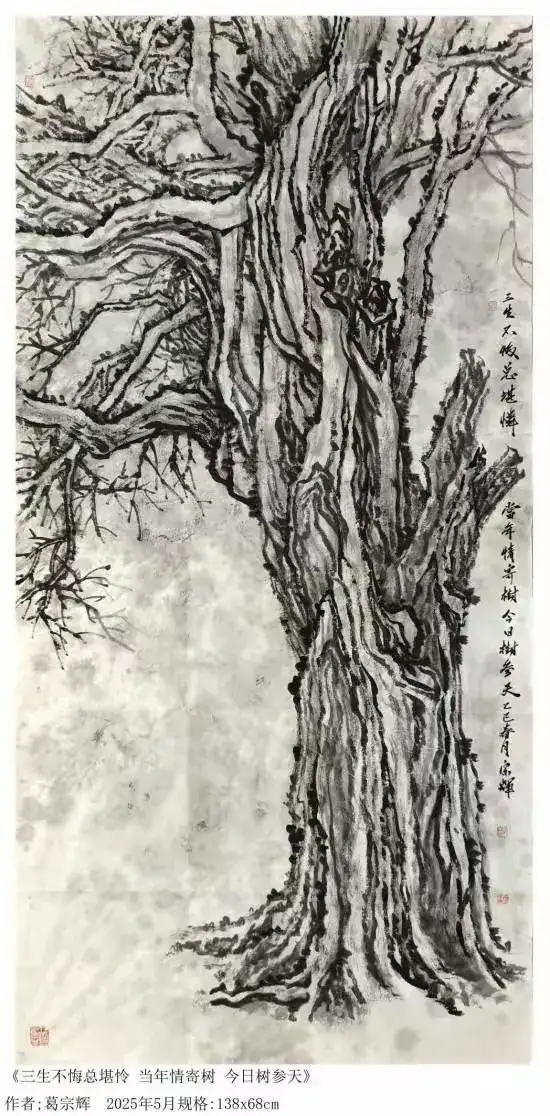 三生不悔总堪憐 當年情寄樹 今日樹參天 乙巳春月宗輝
《三生不悔总堪怜 当年情寄树 今日树参天》
作者:葛宗辉 2025年5月规格:138x68cm